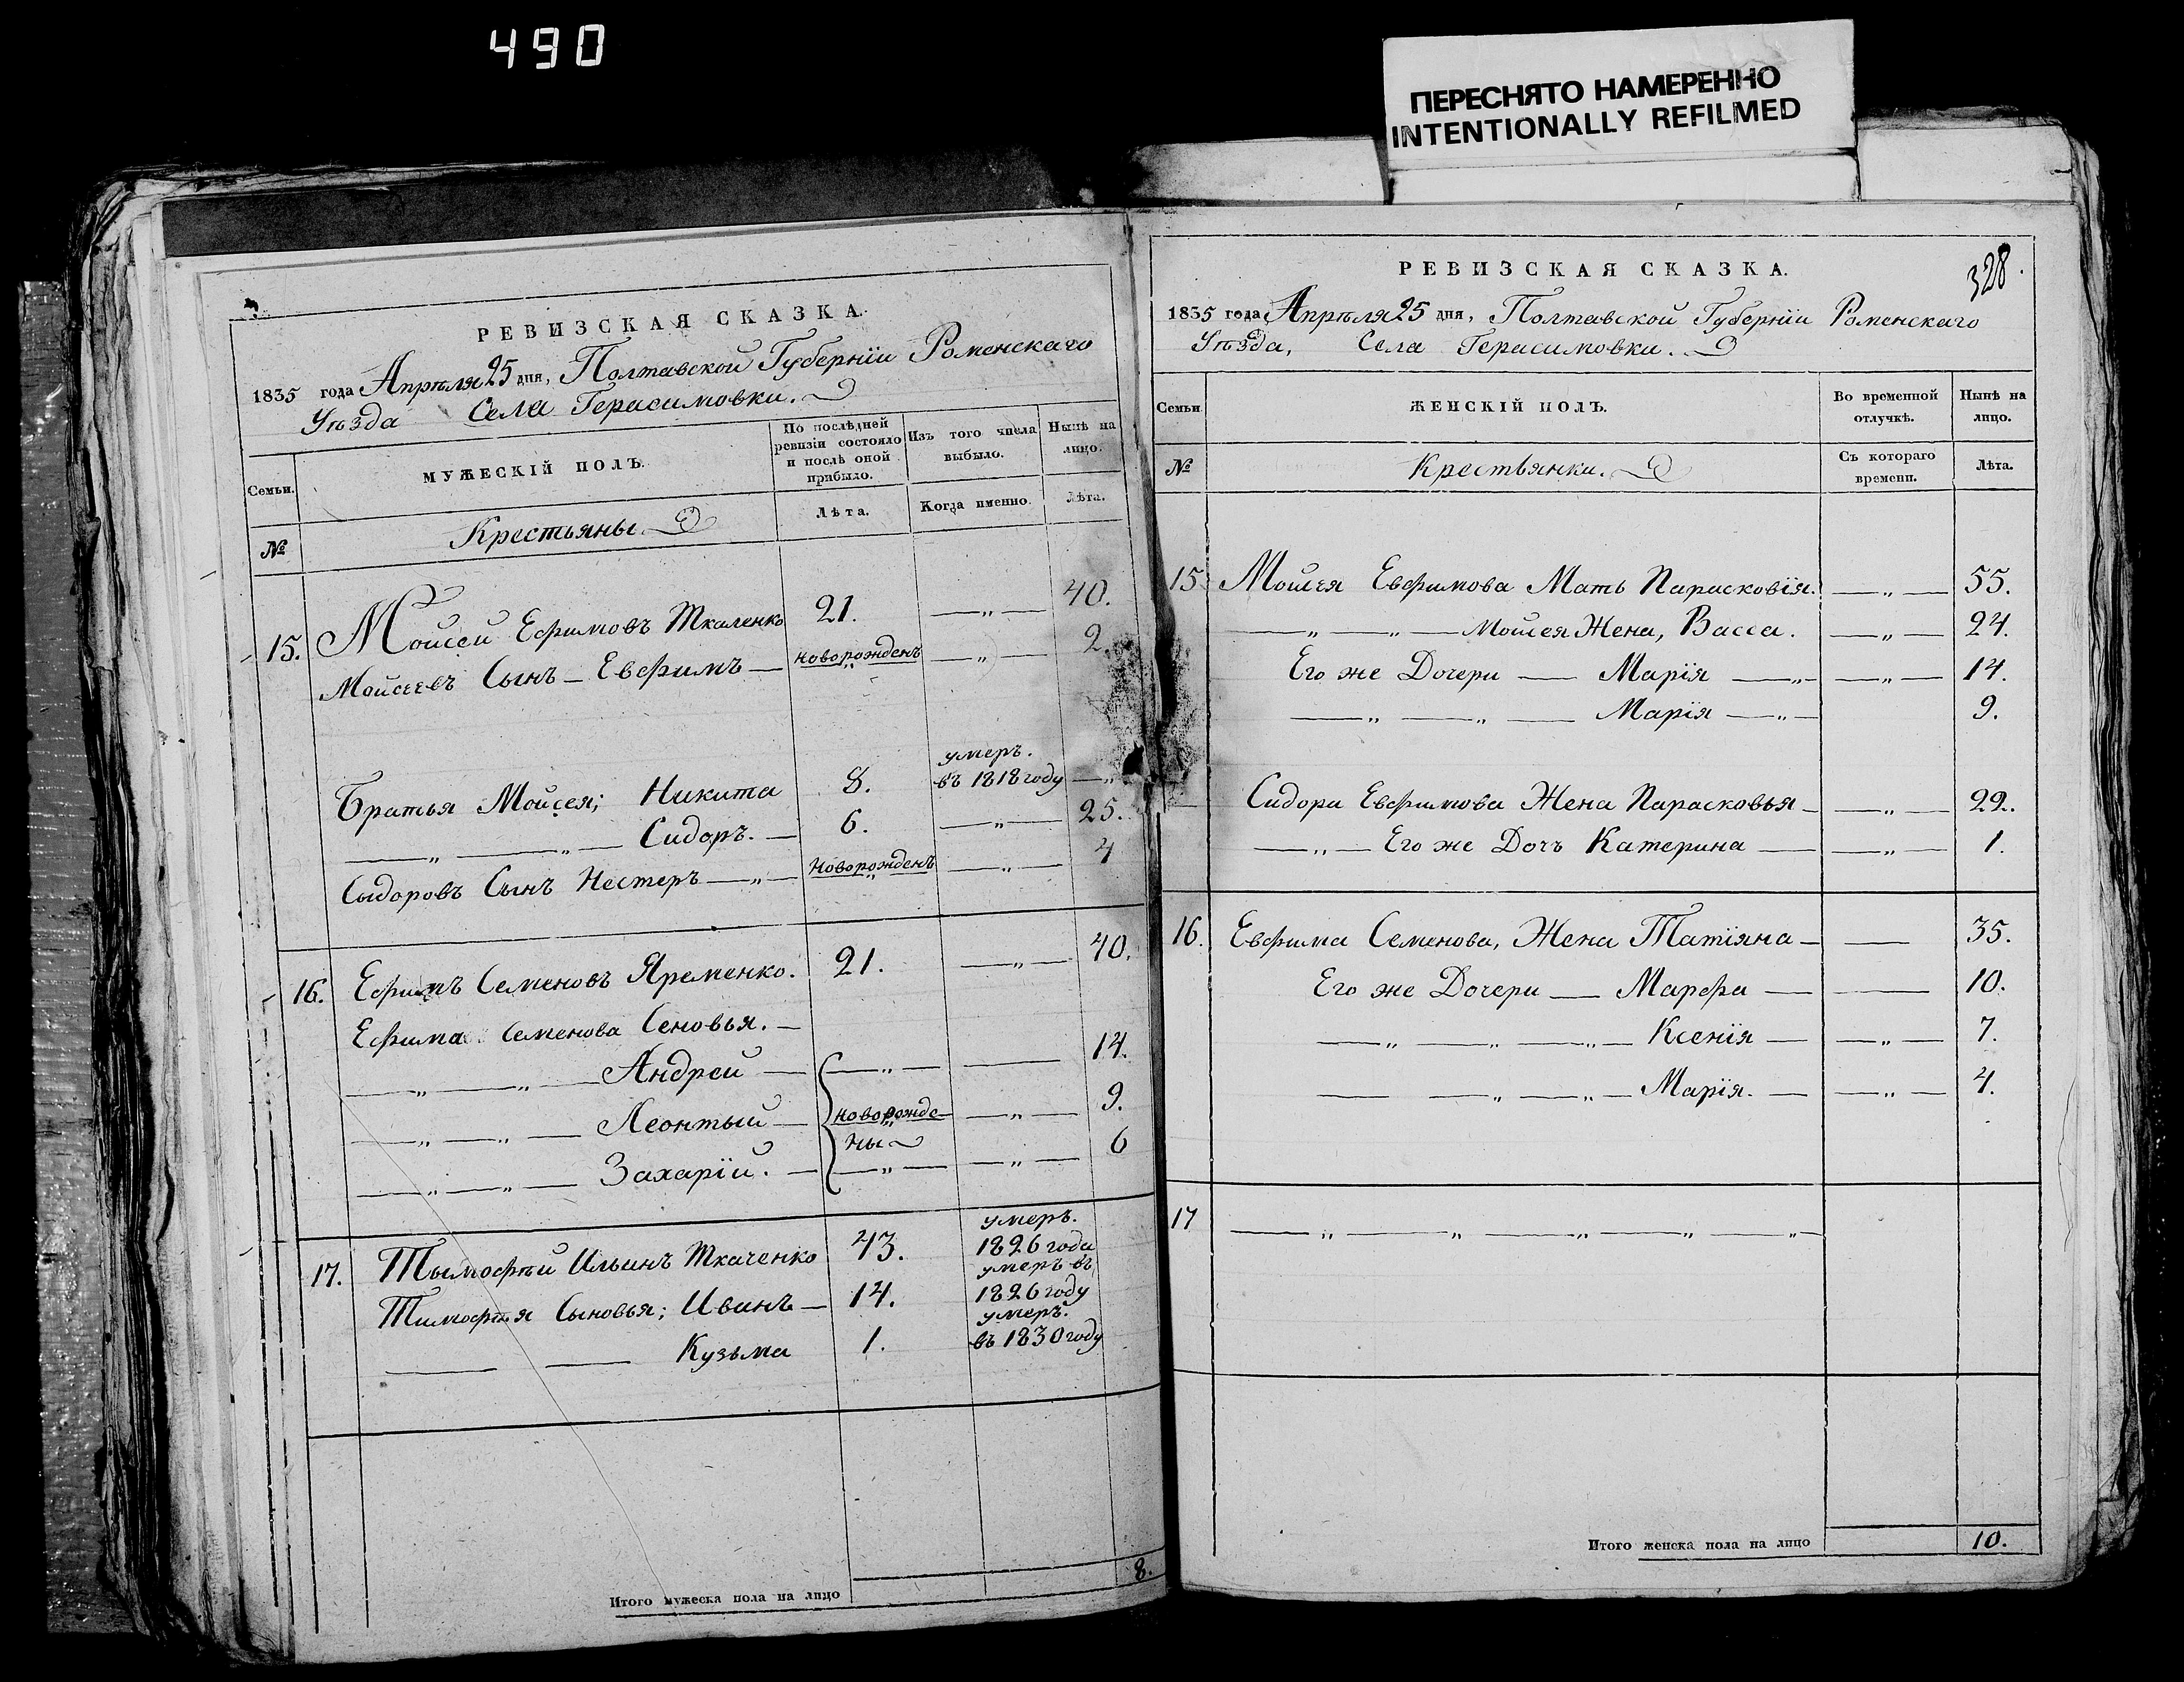 490
ПЕРЕСНЯТО НАМЕРЕННО
INTENTIONALLY REFILMED
РЕВИЗСКАЯ СКАЗКА.
1835 года Апрѣля 25 дня, Полтавской Губернїи Роменскаго
Уѣзда Села Герасимовки.
Семьи. МУЖЕСКІЙ ПОЛЪ. По послѣдней ревизіи состояло и послѣ оной прибыло. Изъ того числа выбыло. Нынѣ на лицо.
№ Крестьяны Лѣта. Когда именно. Лѣта.
15. Мойсей Ефимовъ Ткаленко 21. —„— 40.
Мойсеевъ Сынъ — Евфимъ — новорожденъ —„— 2.
умеръ.
Братья Мойсея; Никита 8. въ 1818 году —„
—„— —„— Сидоръ. — 6. —„— 25.
Сыдоровъ Сынъ Нестеръ —„— Новорожденъ —„— 4
16. Ефимъ Семеновъ Яременко. 21. —„— 40.
Ефима Семенова Сеновья. —
—„— —„— Андрей — —„— — 14.
—„— —„— Леонтый — новорожде- —„— 9.
ны
—„— —„— Захарїй. — —„— —„— 6
умеръ.
17. Тымофѣй Ильинъ Ткаченко 43. 1826 года
умеръ въ
Тимофѣя Сыновья; Иванъ — 14. 1826 году
умеръ.
— — Кузьма 1. въ 1830 году
Итого мужеска пола на лицо 8.
328.
РЕВИЗСКАЯ СКАЗКА.
1835 года Апрѣля 25 дня, Полтавской Губернїи Роменскаго
Уѣзда, Села Герасимовки.
Семьи. ЖЕНСКІЙ ПОЛЪ. Во временной отлучкѣ. Нынѣ на лицо.
№ Крестьянки. Съ котораго времени. Лѣта.
15. Мойсея Евфимова Мать Парасковїя. —„— 55.
—„— —„— Мойсея Жена, Васса. —„— 24.
Его же Дочери — Марїя —„— —„— 14.
—„— —„— — Марїя —„— 9.
Сидора Евфимова Жена Парасковья — —„— 22.
—„— Его же Дочъ Катерина — —„— 1.
16. Евфима Семенова, Жена Татїяна — — 35.
Его же Дочери — Марфа — — 10.
—„— —„— —„— Ксенїя — —„— 7.
— —„— —„— Марїя. — —„— 4.
17 —„— —„— —„— —„— —„—
Итого женска пола на лицо 10.